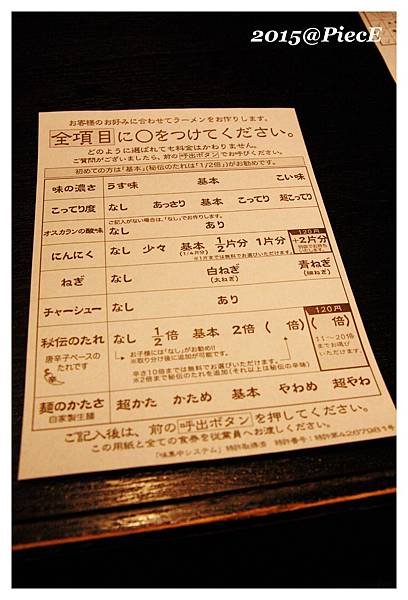 2015@PiecE
お客様のお好みに合わせてラーメンをお作りします。
全項目に○をつけてください。
どのように選ばれても料金はかわりません。
ご質問がございましたら、前の呼出ボタンでお呼びください。
初めての方は「基本」(秘伝のたれは「1/2倍」)がお勧めです。
味の濃さ うす味 基本 こい味
こってり度 なし あっさり 基本 こってり 超こってり
ご記入がない場合は、「なし」でお作りします。
オスカランの酸味 なし あり
120円
にんにく なし 少々 基本 1/2片分 1片分 +2片分
(1/4片分) ※1片までは無料でお選びいただけます。
ねぎ なし 白ねぎ 青ねぎ
(太ねぎ) (細ねぎ)
チャーシュー なし あり
120円
秘伝のたれ なし 1/2倍 基本 2倍 ( 倍) ( 倍)
唐辛子ベースのたれです
お子様には「なし」がお勧め!!
※取り分け後に追加が可能です。
11〜20倍までお選びいただけます。
辛さ10倍までは無料でお選びいただけます。
※2倍まで秘伝のたれを追加(それ以上は秘伝の辛味)
麺のかたさ 超かた かため 基本 やわめ 超やわ
自家製生麺
ご記入後は、前の呼出ボタンを押してください。
この用紙と全ての食券を従業員へお渡しください。
「味集中システム」特許取得済 特許番号:特許第4267981号